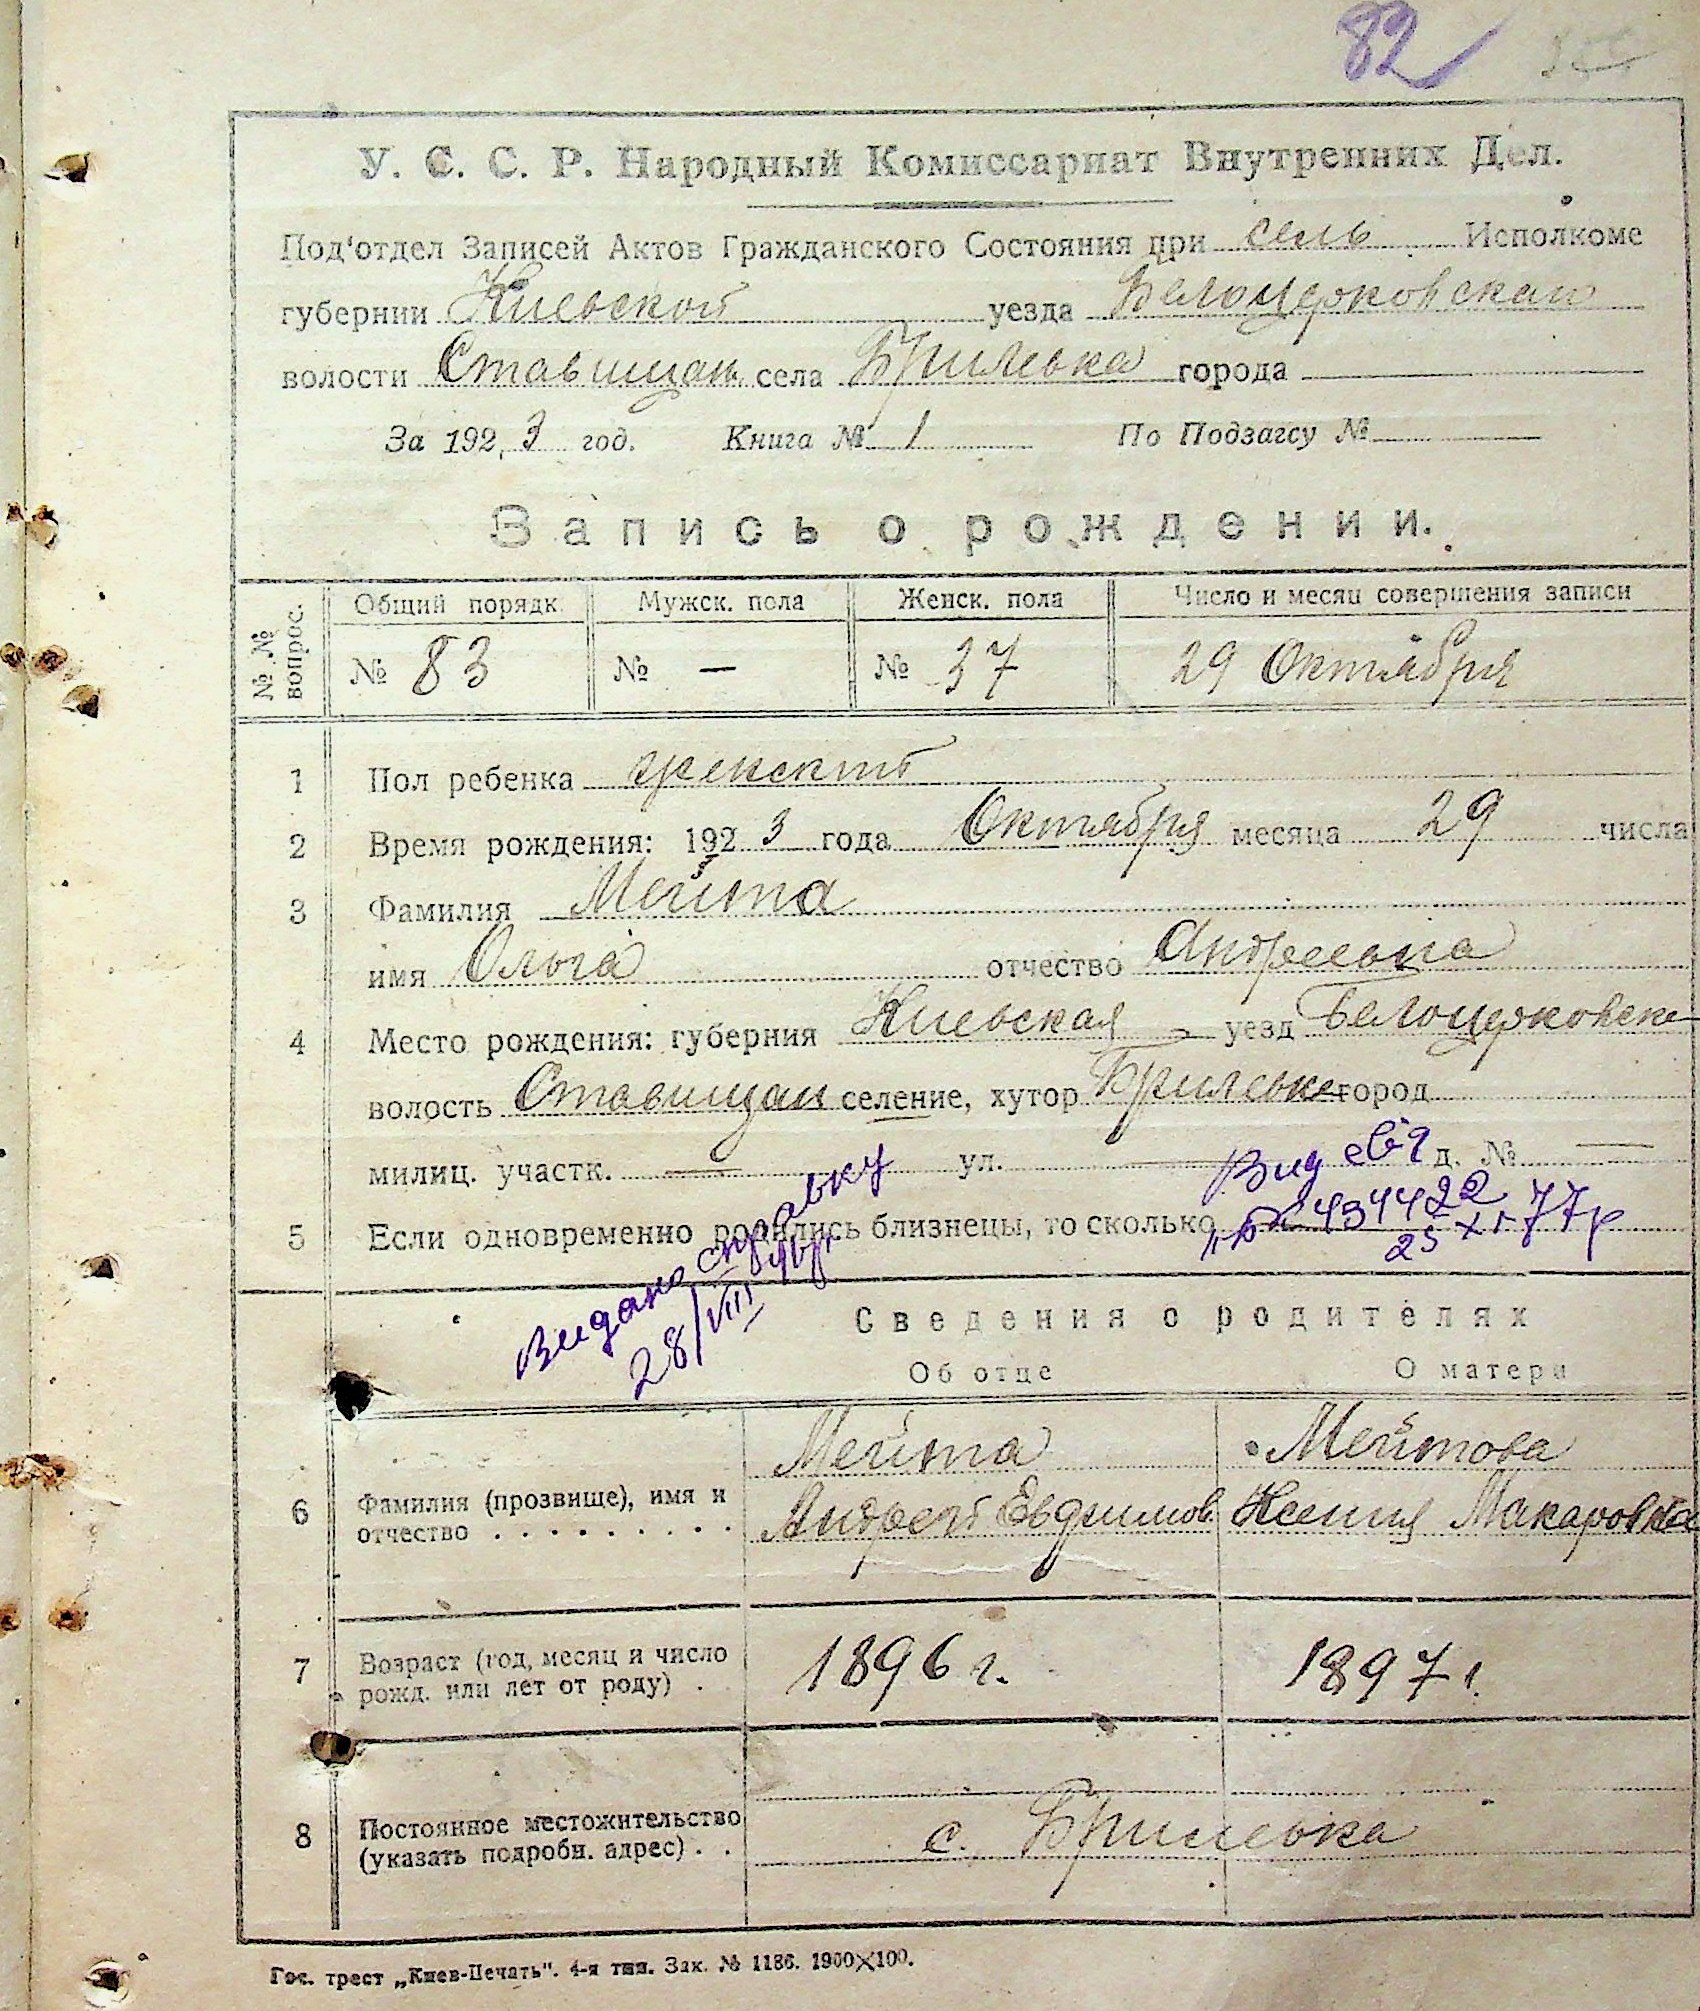 82
У. С. С. Р. Народный Комиссариат Внутренних Дел.
Под'отдел Записей Актов Гражданского Состояния при сель Исполкоме
губернии Киевской уезда Белоцерковскаго
волости Ставищан села Брилевка города
За 1923 год. Книга № 1 По Подзагсу №
Запись о рождении.
№№ вопрос. Общий порядк. Мужск. пола Женск. пола Число и месяц совершения записи
№ 83 № — № 37 29 Октября
1 Пол ребенка женский
2 Время рождения: 1923 года Октября месяца 29 числа
3 Фамилия Мейта
имя Ольга отчество Андреевна
4 Место рождения: губерния Киевская уезд Белоцерковск
волость Ставищан селение, хутор Брилевке город
милиц. участк. — ул. — д. № —
Вид св-я
5 Если одновременно родились близнецы, то сколько
434422
25 XI 77р
Видано справку
28/VIII
Сведения о родителях
Об отце О матери
Мейта Мейтова
6 Фамилия (прозвище), имя и
отчество . . . . . . . . . Андрей Евдримов Ксения Макаровна
7 Возраст (год, месяц и число
рожд. или лет от роду) . 1896 г. 1897 г.
8 Постоянное местожительство
(указать подробн. адрес) . . с. Брилевка
Гос. трест „Киев-Печать". 4-я тип. Зак. № 1186. 1900×100.